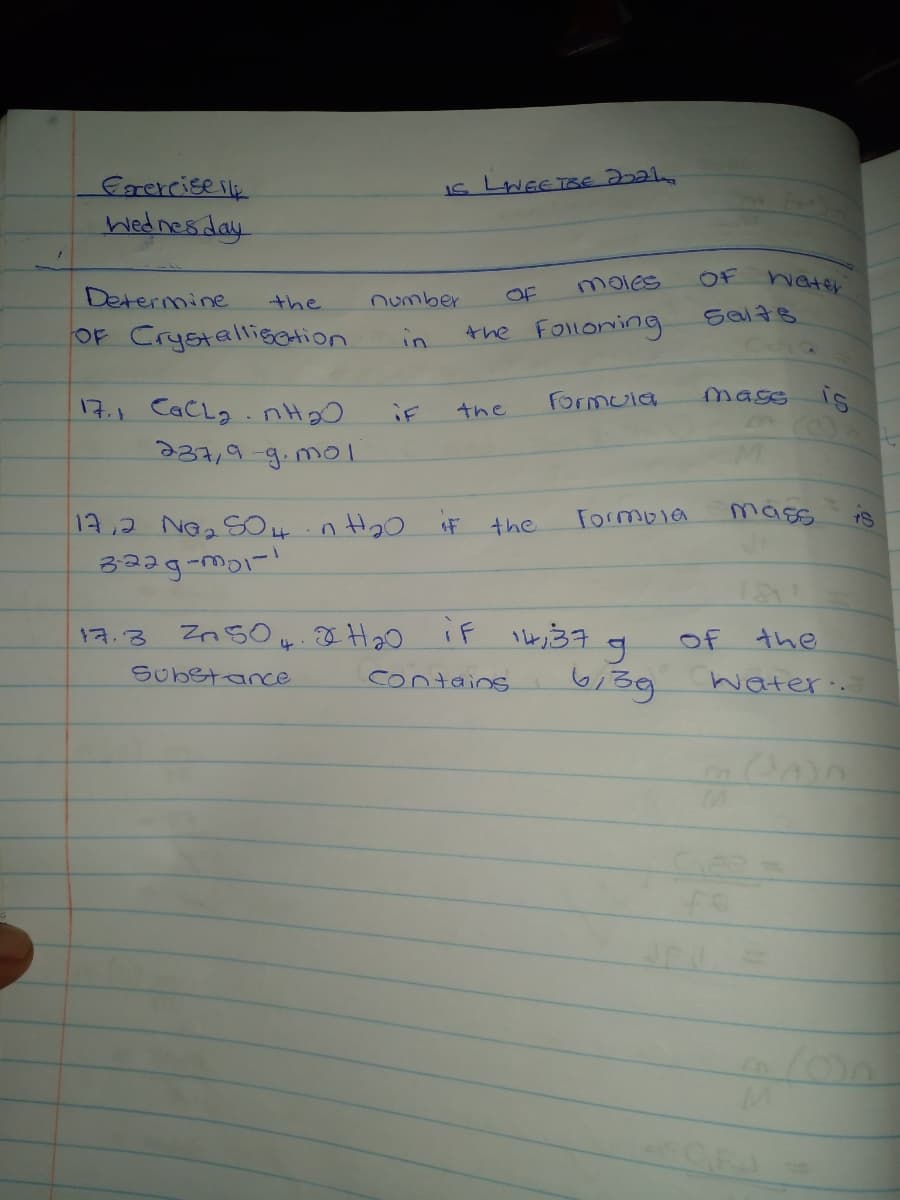 Exercise 14 15 LWEETSE 2021
Wednesday
Determine the number OF moles OF water
OF Crystallisation in the Following salts
17.1 CaCL2 . nH2O iF the Formula mass is
237,9 g.mol
17,2 Na2SO4 . nH2O iF the Formula mass is
322g-mol-1
17.3 ZnSO4. x H2O iF 14,37 g of the
Substance contains 6,3g water..